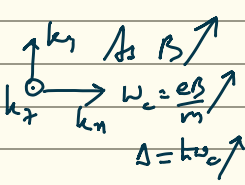 k_y As B ↗
k_z ⊙ → k_x ω_c = eB/m ↗
Δ = ħω_c ↗